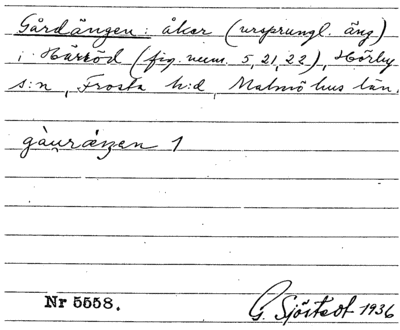 Gårdängen: åker (ursprungl. äng)
i Härröd (fig. num. 5, 21, 22), Hörby
s:n, Frosta h:d, Malmöhus län.
gàuræ̀ŋen 1
Nr 5558.
G. Sjöstedt 1936